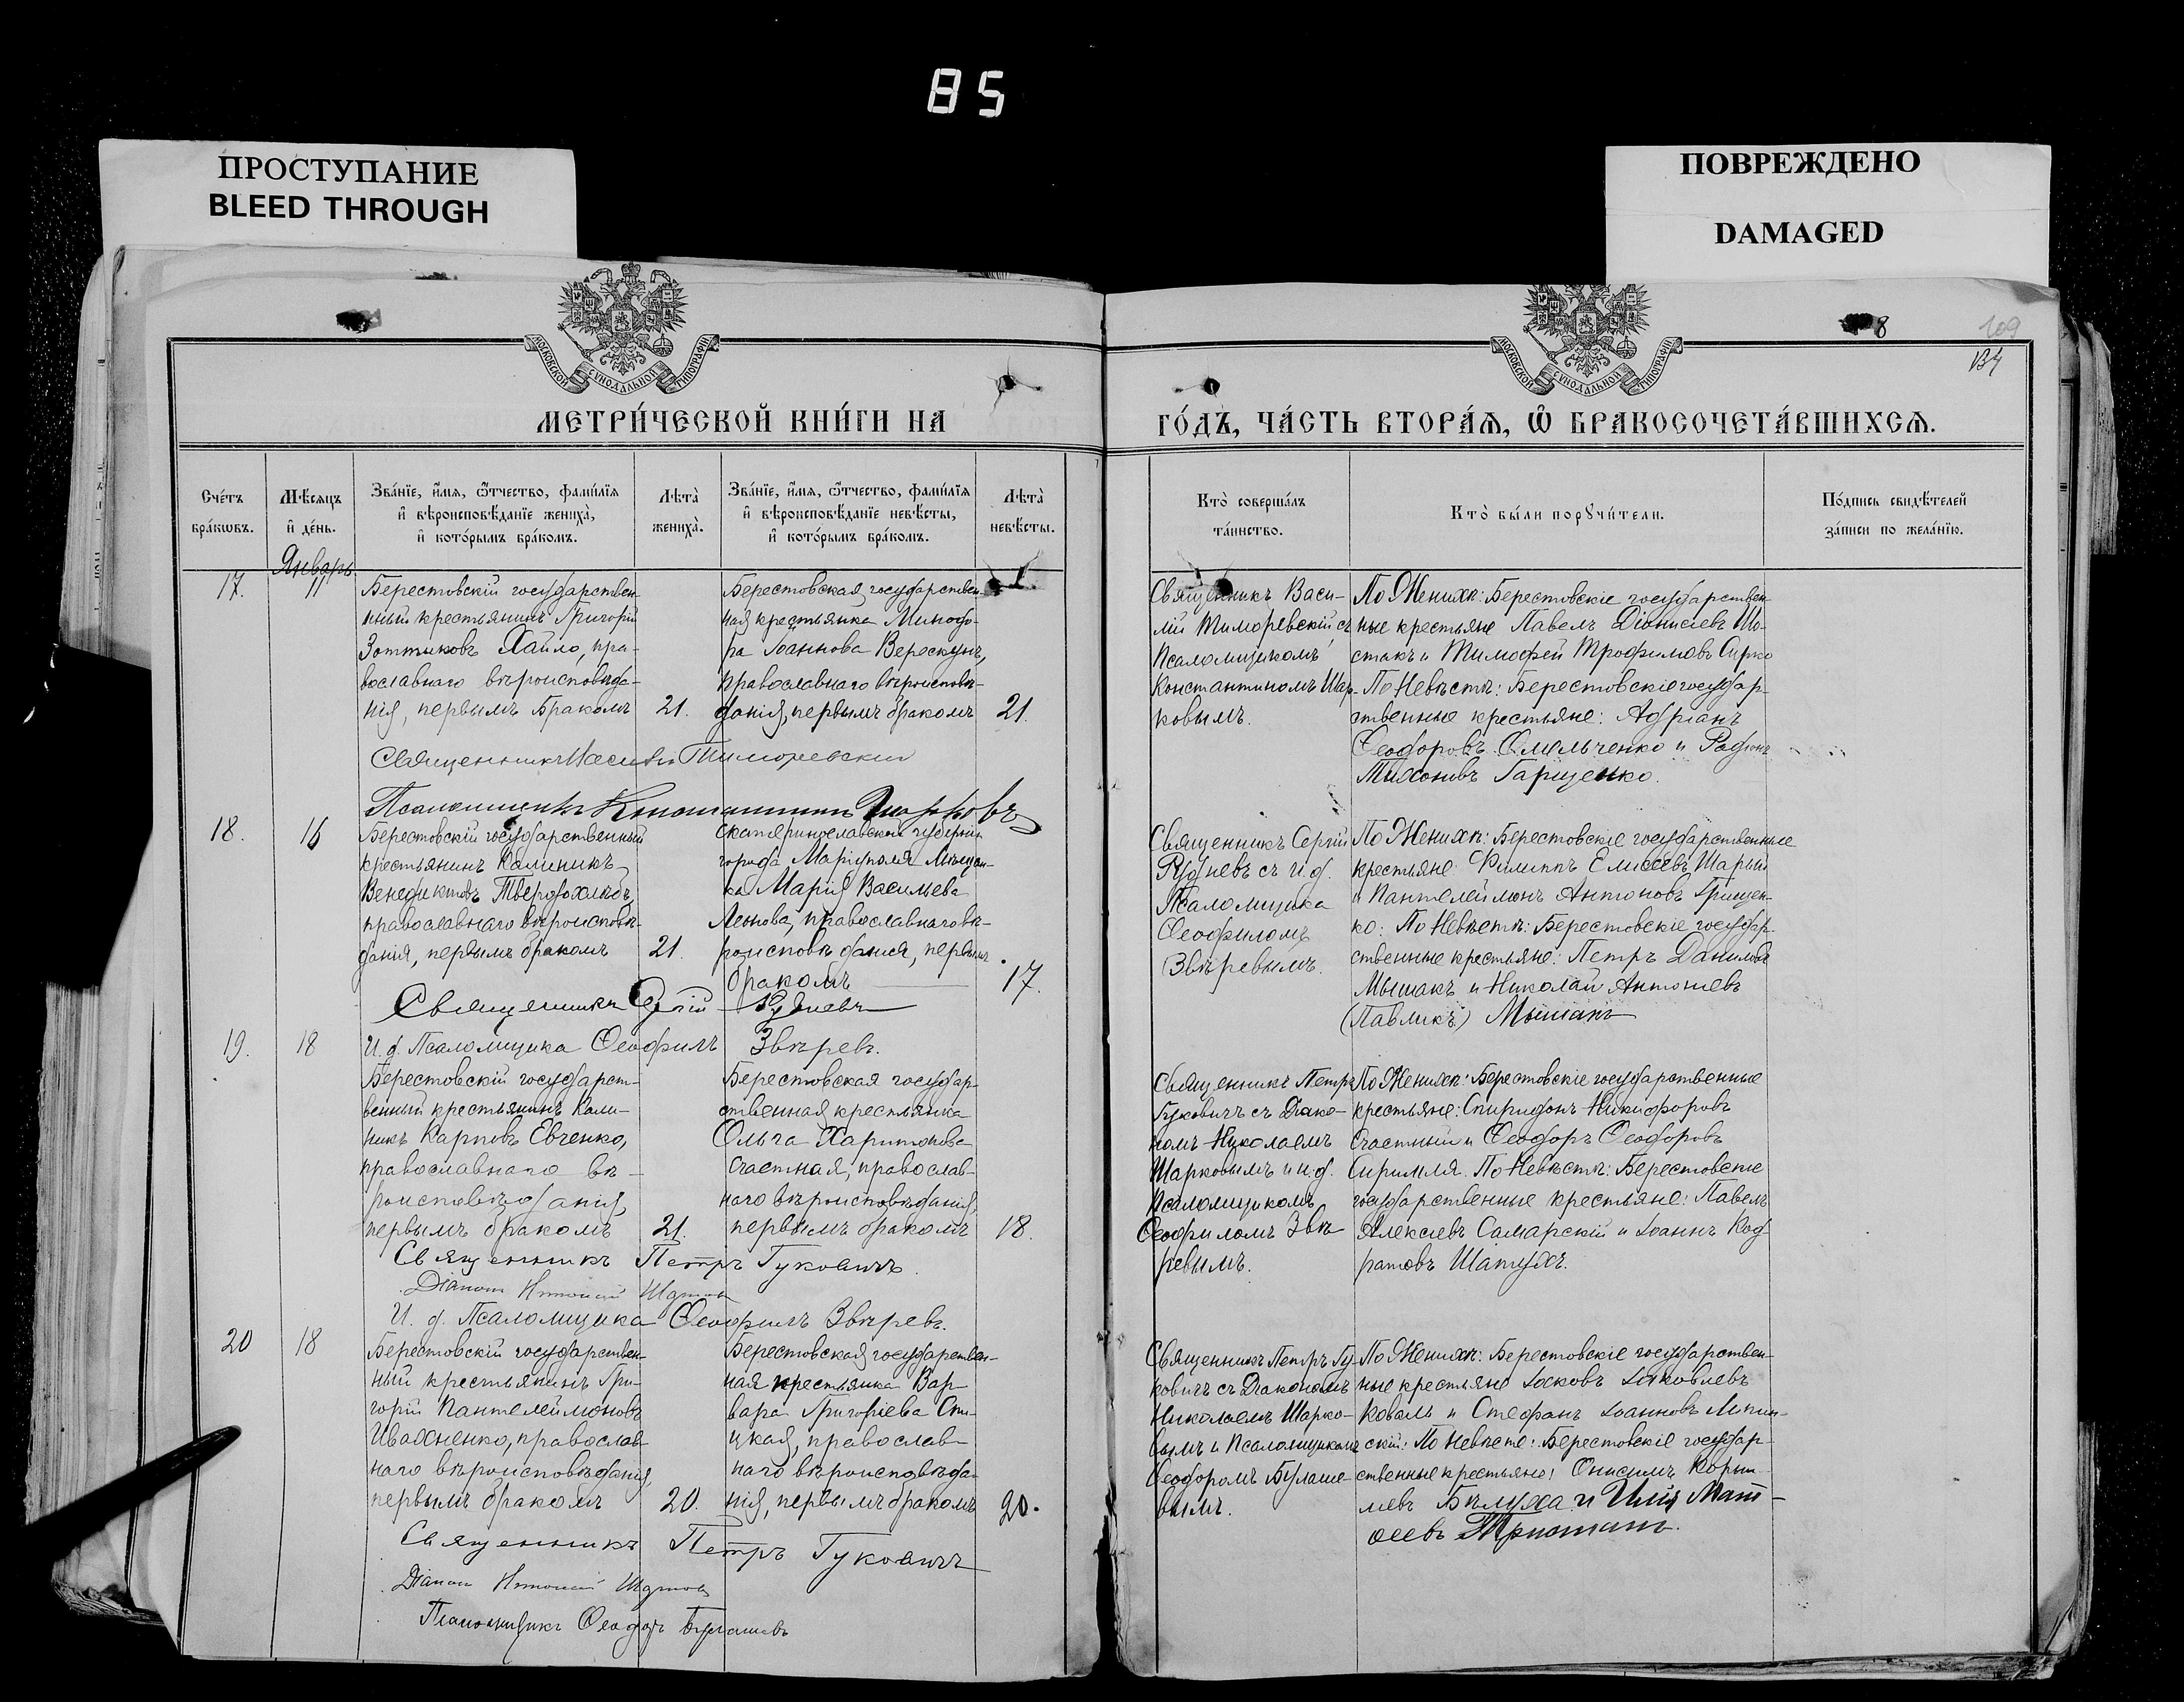 85
ПРОСТУПАНИЕ
BLEED THROUGH
ПОВРЕЖДЕНО
DAMAGED
МОСКОВСКОЙ СѴНОДАЛЬНОЙ ТИПОГРАФІИ
МОСКОВСКОЙ СѴНОДАЛЬНОЙ ТИПОГРАФІИ
8
109
134
МЕТРИ́ЧЕСКОЙ КНИ́ГИ НА
ГО́ДЪ, ЧА́СТЬ ВТОРА́Ѧ, Ѽ БРАКОСОЧЕТА́ВШИХСѦ.
Сче́тъ
бра́кѡвъ.
Мѣ́сѧцъ
и҆ де́нь.
Зва́нїе, и҆́мѧ, ѻ҆́тчество, фами́лїѧ
и҆ вѣроисповѣ́данїе жениха̀,
и҆ кото́рымъ бра́комъ.
Лѣта̀
жениха̀.
Зва́нїе, и҆́мѧ, ѻ҆́тчество, фами́лїѧ
и҆ вѣроисповѣ́данїе невѣ́сты,
и҆ кото́рымъ бра́комъ.
Лѣта̀
невѣ́сты.
Кто̀ соверша́лъ
та́инство.
Кто̀ бы́ли порꙋчи́тели.
По́дпись свидѣ́телей
за́писи по жела́нїю.
Январь
17.
11
Берестовскій государствен-
ный крестьянинъ Григорій
Зотиковъ Хайло, пра-
вославнаго вѣроисповѣда-
нія, первымъ бракомъ
21.
Берестовская государствен-
ная крестьянка Минодо-
ра Іоаннова Верескунъ,
православнаго вѣроисповѣ-
данія, первымъ бракомъ
21.
Священникъ Васи-
лій Тиморевскій съ
Псаломщикомъ
Константиномъ Шар-
ковымъ.
По Женихѣ: Берестовскіе государствен-
ные крестьяне Павелъ Діонисіевъ Шо-
стакъ и Тимофей Трофимовъ Сирко
По Невѣстѣ: Берестовскіе государ-
ственные крестьяне: Адріанъ
Ѳеодоровъ Омельченко и Родіонъ
Тихоновъ Гарщенко.
Священникъ Василій Тиморевскій
Псаломщикъ Константинъ Шарковъ
18.
16
Берестовскій государственный
крестьянинъ Калиникъ
Венедиктовъ Твердохлѣбъ,
православнаго вѣроисповѣ-
данія, первымъ бракомъ
21.
Екатеринославской губерніи
города Маріуполя мѣщан-
ка Марія Васильева
Леонова, православнаго вѣ-
роисповѣданія, первымъ
бракомъ
17.
Священникъ Сергій
Рудневъ съ и. д.
Псаломщика
Ѳеофиломъ
Звѣревымъ.
По Женихѣ: Берестовскіе государственные
крестьяне: Филиппъ Елисѣевъ Шарый
и Пантелеймонъ Антоновъ Грищен-
ко: По Невѣстѣ: Берестовскіе государ-
ственные крестьяне: Петръ Даниловъ
Мышакъ и Николай Антоніевъ
(Павликъ) Мышакъ
Священникъ Сергій Рудневъ
И. д. Псаломщика Ѳеофилъ Звѣревъ.
19.
18
Берестовскій государст-
венный крестьянинъ Кали-
никъ Карповъ Евченко,
православнаго вѣ-
роисповѣданія,
первымъ бракомъ
21.
Берестовская государ-
ственная крестьянка
Ольга Харитонова
Счастная, православ-
наго вѣроисповѣданія,
первымъ бракомъ
18.
Священникъ Петръ
Гуковичъ съ Діако-
номъ Николаемъ
Шарковымъ и и. д.
Псаломщикомъ
Ѳеофиломъ Звѣ-
ревымъ.
По Женихѣ: Берестовскіе государственные
крестьяне: Спиридонъ Никифоровъ
Счастный и Ѳеодоръ Ѳеодоровъ
Сиримля. По Невѣстѣ: Берестовскіе
государственные крестьяне: Павелъ
Алексѣевъ Самарскій и Іоаннъ Код-
ратовъ Шатухъ.
Священникъ Петръ Гуковичъ
Діаконъ Николай Шарковъ
И. д. Псаломщика Ѳеофилъ Звѣревъ.
20
18
Берестовскій государствен-
ный крестьянинъ Гри-
горій Пантелеймоновъ
Ивахненко, православ-
наго вѣроисповѣданія,
первымъ бракомъ
20.
Берестовская государствен-
ная крестьянка Вар-
вара Григоріева Спи-
цкая, православ-
наго вѣроисповѣда-
нія, первымъ бракомъ
20.
Священникъ Петръ Гу-
ковичъ съ Діакономъ
Николаемъ Шарко-
вымъ и Псаломщикомъ
Ѳеодоромъ Булаше-
вымъ.
По Женихѣ: Берестовскіе государствен-
ные крестьяне Іаковъ Іаковлевъ
Коваль и Стефанъ Іоанновъ Липин-
скій: По Невѣстѣ: Берестовскіе государ-
ственные крестьяне: Онисимъ Корни-
ліевъ Бѣлуха и Илія Мат-
ѳеевъ
Священникъ Петръ Гуковичъ
Діаконъ Николай Шарковъ
Псаломщикъ Ѳеодоръ Булашевъ